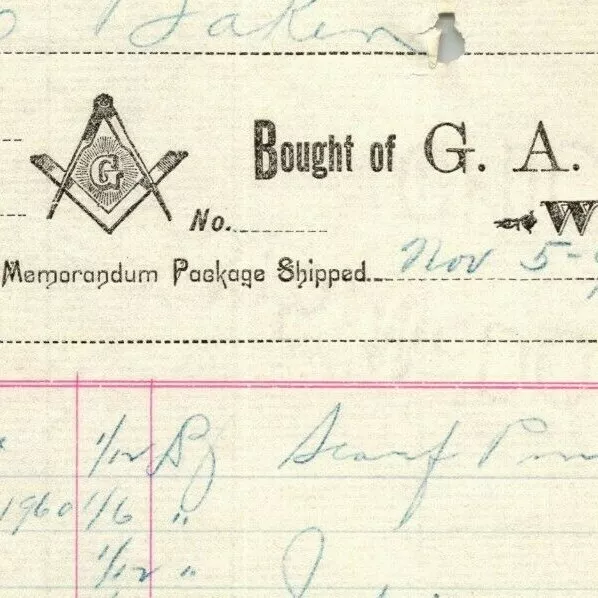 Baker
G
Bought of G. A.
No.
W
Memorandum Package Shipped Nov 5-
1/12 Scarf Pin
1960 1/6 "
1/12 "